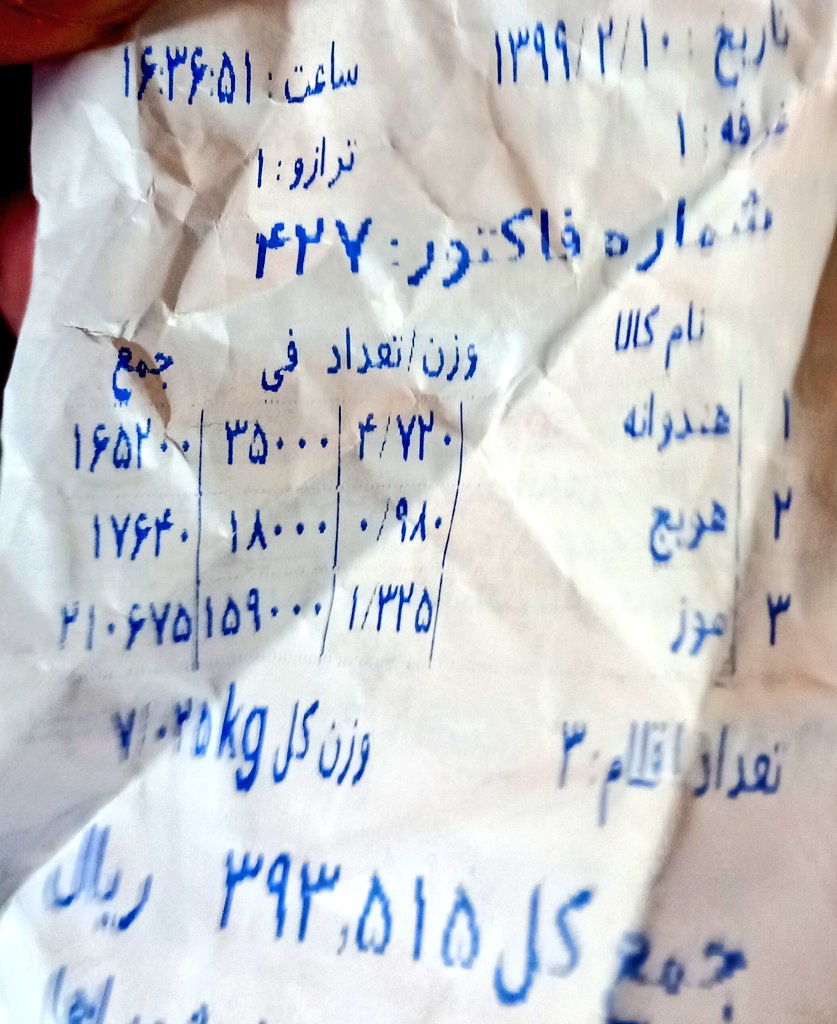 تاریخ : ۱۳۹۹/۲/۱۰ ساعت : ۱۶:۳۶:۵۱
غرفه : ۱ ترازو : ۱
شماره فاکتور : ۴۲۷
نام کالا وزن/تعداد فی جمع
۱ هندوانه ۴/۷۲۰ ۳۵۰۰۰ ۱۶۵۲۰۰
۲ هویج ۰/۹۸۰ ۱۸۰۰۰ ۱۷۶۴۰
۳ موز ۱/۳۲۵ ۱۵۹۰۰۰ ۲۱۰۶۷۵
تعداد اقلام : ۳ وزن کل ۷/۰۲۵kg
جمع کل ۳۹۳,۵۱۵ ریال